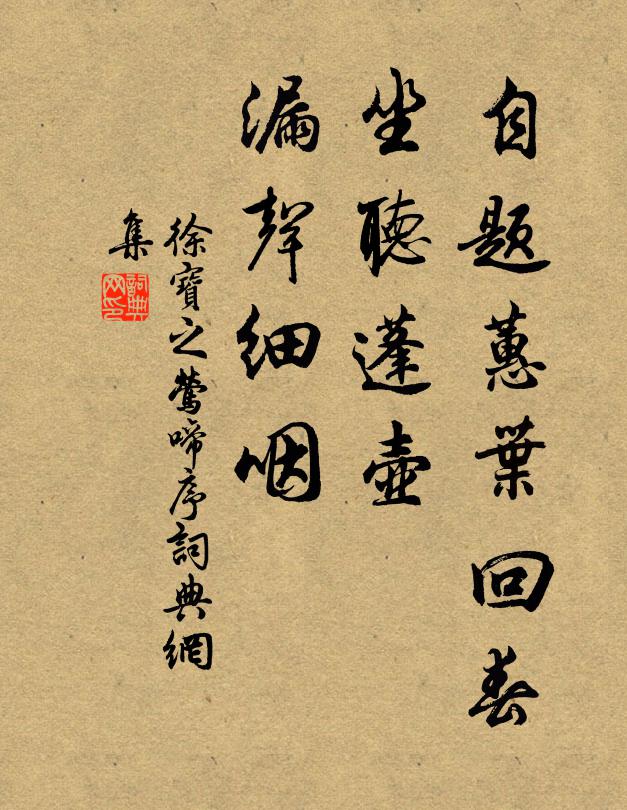 自题蕙葉回春
坐聽蓬壺
漏聲細咽
徐寶之鶯啼序詞典網
集
詞典
网印